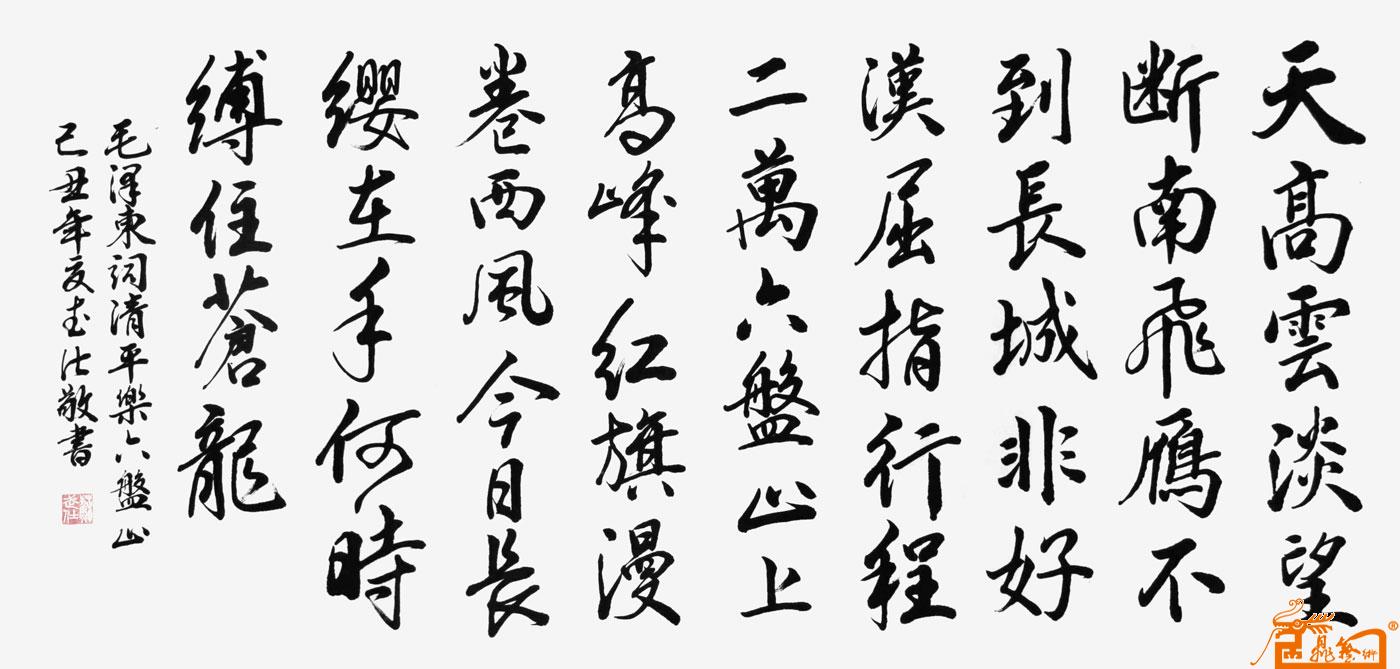 天高雲淡望
断南飛鴈不
到長城非好
漢屈指行程
二萬六盤山上
高峰红旗漫
卷西风今日長
缨在手何時
縛住蒼龍
毛澤東词清平樂六盤山
己丑年夏武仕敬書